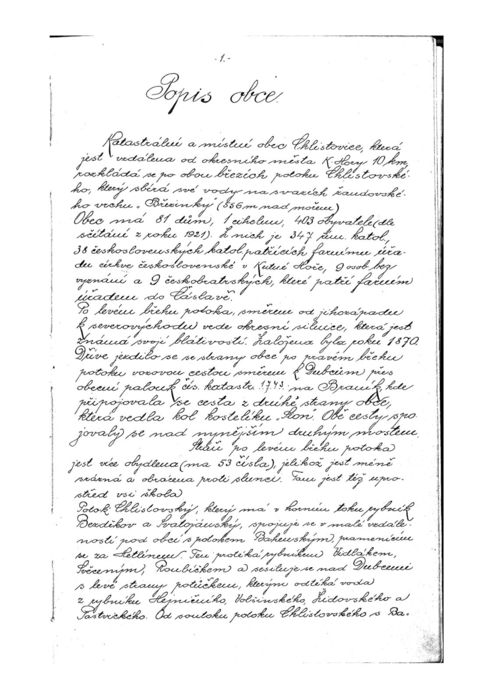 -1.-
Popis obce.
Katastrální a místní obec Chlístovice, která
jest vzdálena od okresního města K. Hory 10 km,
rozkládá se po obou březích potoku Chlístovské-
ho, který sbírá své vody na svazích žandovské-
ho vrchu "Březinky" (556 m nad mořem)
Obec má 81 dům, 1 cihelnu, 403 obyvatele (dle
sčítání z roku 1921). Z nich je 347 řím. katol,
38 československých katol. patřících farnímu úřa-
du církve československé v Kutné Hoře, 9 osob bez
vyznání a 9 českobratrských, které patří farním
úřadem do Čáslavě.
Po levém břehu potoka, směrem od jihozápadu
k severovýchodu vede okresní silnice, která jest
známa svojí blátivostí. Založena byla roku 1870.
Dříve jezdilo se se strany obce po pravém břehu
potoku vozovou cestou směrem k Dubcům přes
obecní palouk čís. katastr. 1743 na Braník, kde
připojovala se cesta z druhé strany obce,
která vedla kol kostelíku "Honí". Obě cesty spo-
jovaly se nad nynějším druhým mostem.
po levém břehu potoka
jest více obydlena (ma 53 čísla), jelikož jest méně
srázná a obrácena proti slunci. Tam jest též upro-
střed vsi škola
Potok Chlístovský, který má v horním toku rybník
Bezděkov a Svatojánský, spojuje se v malé vzdále-
nosti pod obcí s potokem Bahenským, pramenícím
se za Zetlínem. Ten protéká rybníkem Vidlákem,
Svěceným, Roubíčkem a sesiluje se nad Dubcemi
s levé strany potůčkem, kterým odtéká voda
z rybníku Hejničního, Volšinského, Židovského a
Pastvického. Od soutoku potoku Chlístovského s Ba-